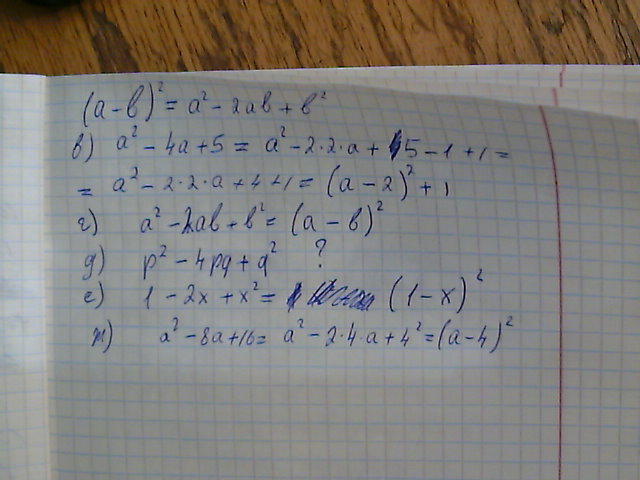 (a-b)² = a² - 2ab + b²
в) a² - 4a + 5 = a² - 2·2·a + 5 - 1 + 1 =
= a² - 2·2·a + 4 + 1 = (a-2)² + 1
г) a² - 2ab + b² = (a - b)²
д) p² - 4pq + q² ?
е) 1 - 2x + x² = (1-x)²
ж) a² - 8a + 16 = a² - 2·4·a + 4² = (a-4)²